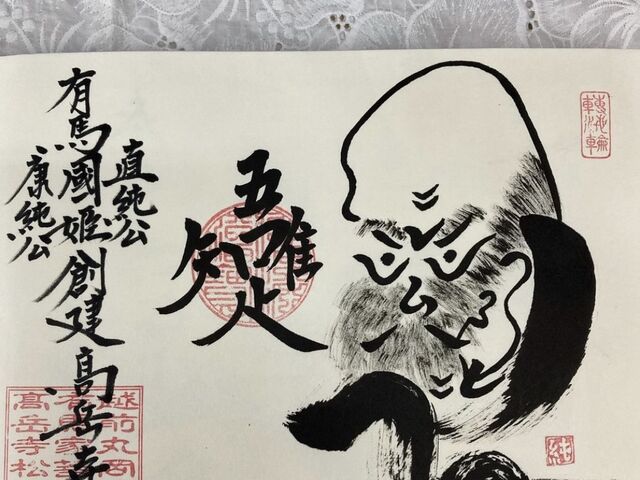 轉法輪
吾唯足知
直純公
有馬國姫創建高岳寺
康純公
越前丸岡
有馬家菩
高岳寺松